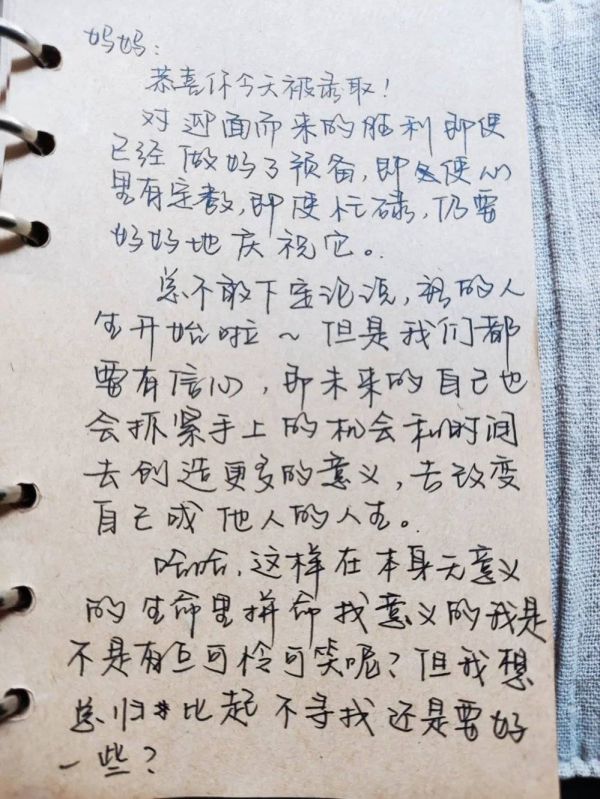 妈妈：
恭喜你今天被录取！
对迎面而来的胜利即使
已经做好了预备，即使心
里有定数，即使忙碌，仍要
好好地庆祝它。
总不敢下定论说，新的人
生开始啦～但是我们都
要有信心，即未来的自己也
会抓紧手上的机会和时间
去创造更多的意义，去改变
自己或他人的人生。
哈哈，这样在本身无意义
的生命里拼命找意义的我是
不是有点可怜可笑呢？但我想
总归比起不寻找还是要好
一些？